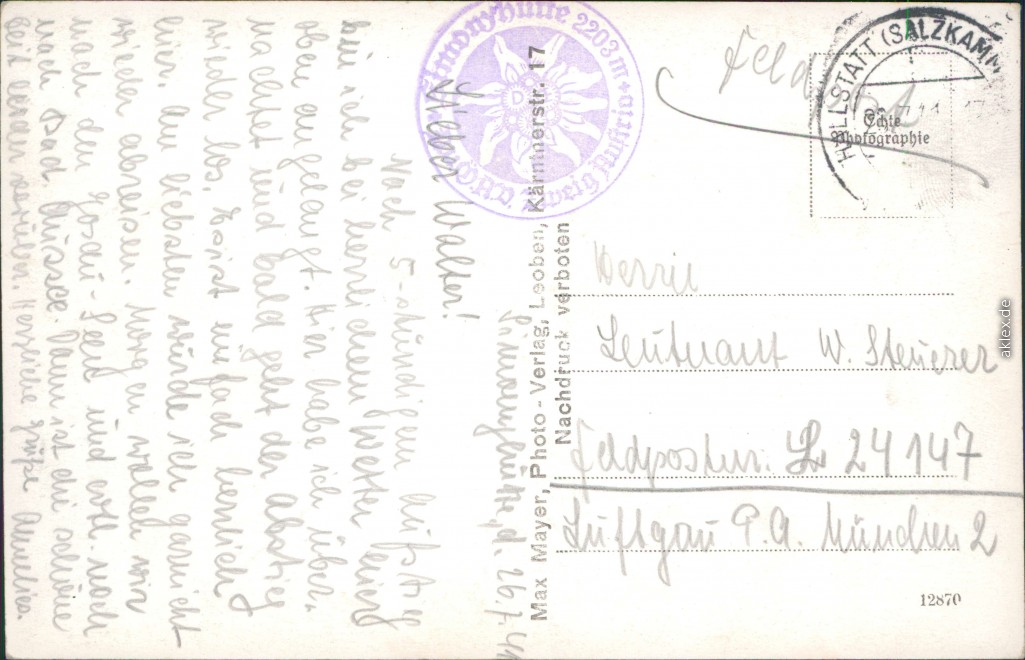 Simonyhütte, d. 26.7.41
Lieber Walter!
Nach 5-stündigem Aufstieg
bin ich bei herrlichem Wetter hier
oben angelangt. Hier habe ich über-
nachtet und bald geht der Abstieg
wieder los. Es ist einfach herrlich
hier. Am liebsten würde ich garnicht
wieder abreisen. Morgen wollen wir
nach den Gosau-Seen und evtl. noch
nach Bad Aussee. Dann ist die schöne
Zeit vorüber. Herzliche Grüße
Simonyhütte 2203 m
Max Mayer, Photo-Verlag, Leoben, Kärntnerstr. 17
Nachdruck verboten
Feldpost
HALLSTATT (SALZKAMM
Echte
Photographie
Herrn
Leutnant W. Steuerer
Feldpostnr. L 24147
Luftgau P.A. München 2
12870
aklex.de